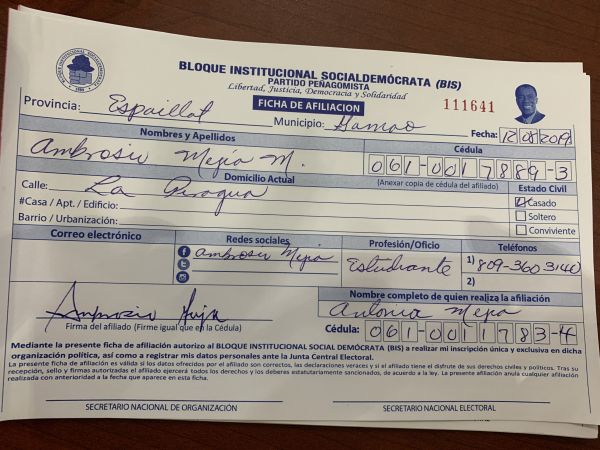 BLOQUE INSTITUCIONAL SOCIALDEMÓCRATA (BIS)
PARTIDO PEÑAGOMISTA
Libertad, Justicia, Democracia y Solidaridad
FICHA DE AFILIACION
111641
Provincia: Espaillat Municipio: Gamao Fecha: 12/08/2019
Nombres y Apellidos Cédula
Ambrosio Mejia M. 061-0017889-3
Domicilio Actual (Anexar copia de cédula del afiliado) Estado Civil
Calle: La Piragua Casado
#Casa / Apt. / Edificio: Soltero
Barrio / Urbanización: Conviviente
Correo electrónico Redes sociales Profesión/Oficio Teléfonos
ambrosio Mejia Estudiante 1) 809-360 3140
2)
Nombre completo de quien realiza la afiliación
Antonia Mejia
Ambrosio Mejia
Firma del afiliado (Firme igual que en la Cédula) Cédula: 061-0011783-4
Mediante la presente ficha de afiliación autorizo al BLOQUE INSTITUCIONAL SOCIAL DEMÓCRATA (BIS) a realizar mi inscripción única y exclusiva en dicha
organización política, así como a registrar mis datos personales ante la Junta Central Electoral.
La presente ficha de afiliación es válida si los datos ofrecidos por el afiliado son correctos, las declaraciones veraces y si el afiliado tiene el disfrute de sus derechos civiles y políticos. Tras su
recepción, sello y firmas autorizadas el afiliado ejercerá todos los derechos y los deberes estatutariamente sancionados, de acuerdo a la ley. La presente afiliación anula cualquier afiliación
realizada con anterioridad a la fecha que aparece en esta ficha.
SECRETARIO NACIONAL DE ORGANIZACIÓN SECRETARIO NACIONAL ELECTORAL